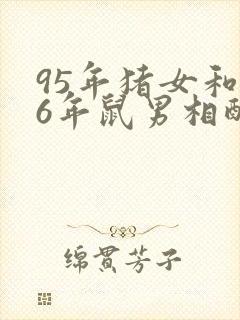 95年猪女和
6年鼠男相配
绵贯芳子